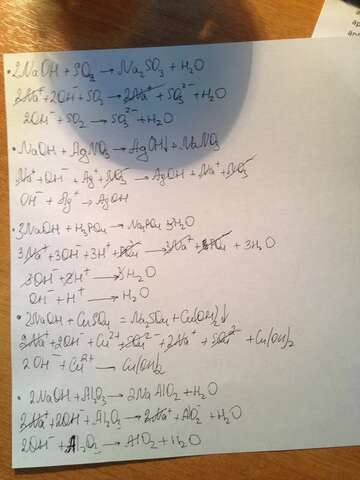 • 2NaOH + SO₂ → Na₂SO₃ + H₂O
2Na⁺ + 2OH⁻ + SO₂ → 2Na⁺ + SO₃²⁻ + H₂O
2OH⁻ + SO₂ → SO₃²⁻ + H₂O
• NaOH + AgNO₃ → AgOH↓ + NaNO₃
Na⁺ + OH⁻ + Ag⁺ + NO₃⁻ → AgOH + Na⁺ + NO₃⁻
OH⁻ + Ag⁺ → AgOH
• 3NaOH + H₃PO₄ → Na₃PO₄ 3H₂O
3Na⁺ + 3OH⁻ + 3H⁺ + PO₄ → 3Na⁺ + PO₄ + 3H₂O
3OH⁻ + 3H⁺ → 3H₂O
OH⁻ + H⁺ → H₂O
• 2NaOH + CuSO₄ = Na₂SO₄ + Cu(OH)₂↓
2Na⁺ + 2OH⁻ + Cu²⁺ + SO₄²⁻ + 2Na⁺ + SO₄²⁻ + Cu(OH)₂
2OH⁻ + Cu²⁺ → Cu(OH)₂
• 2NaOH + Al₂O₃ → 2NaAlO₂ + H₂O
2Na⁺ + 2OH⁻ + Al₂O₃ → 2Na⁺ + AlO₂⁻ + H₂O
2OH⁻ + Al₂O₃ → AlO₂ + H₂O